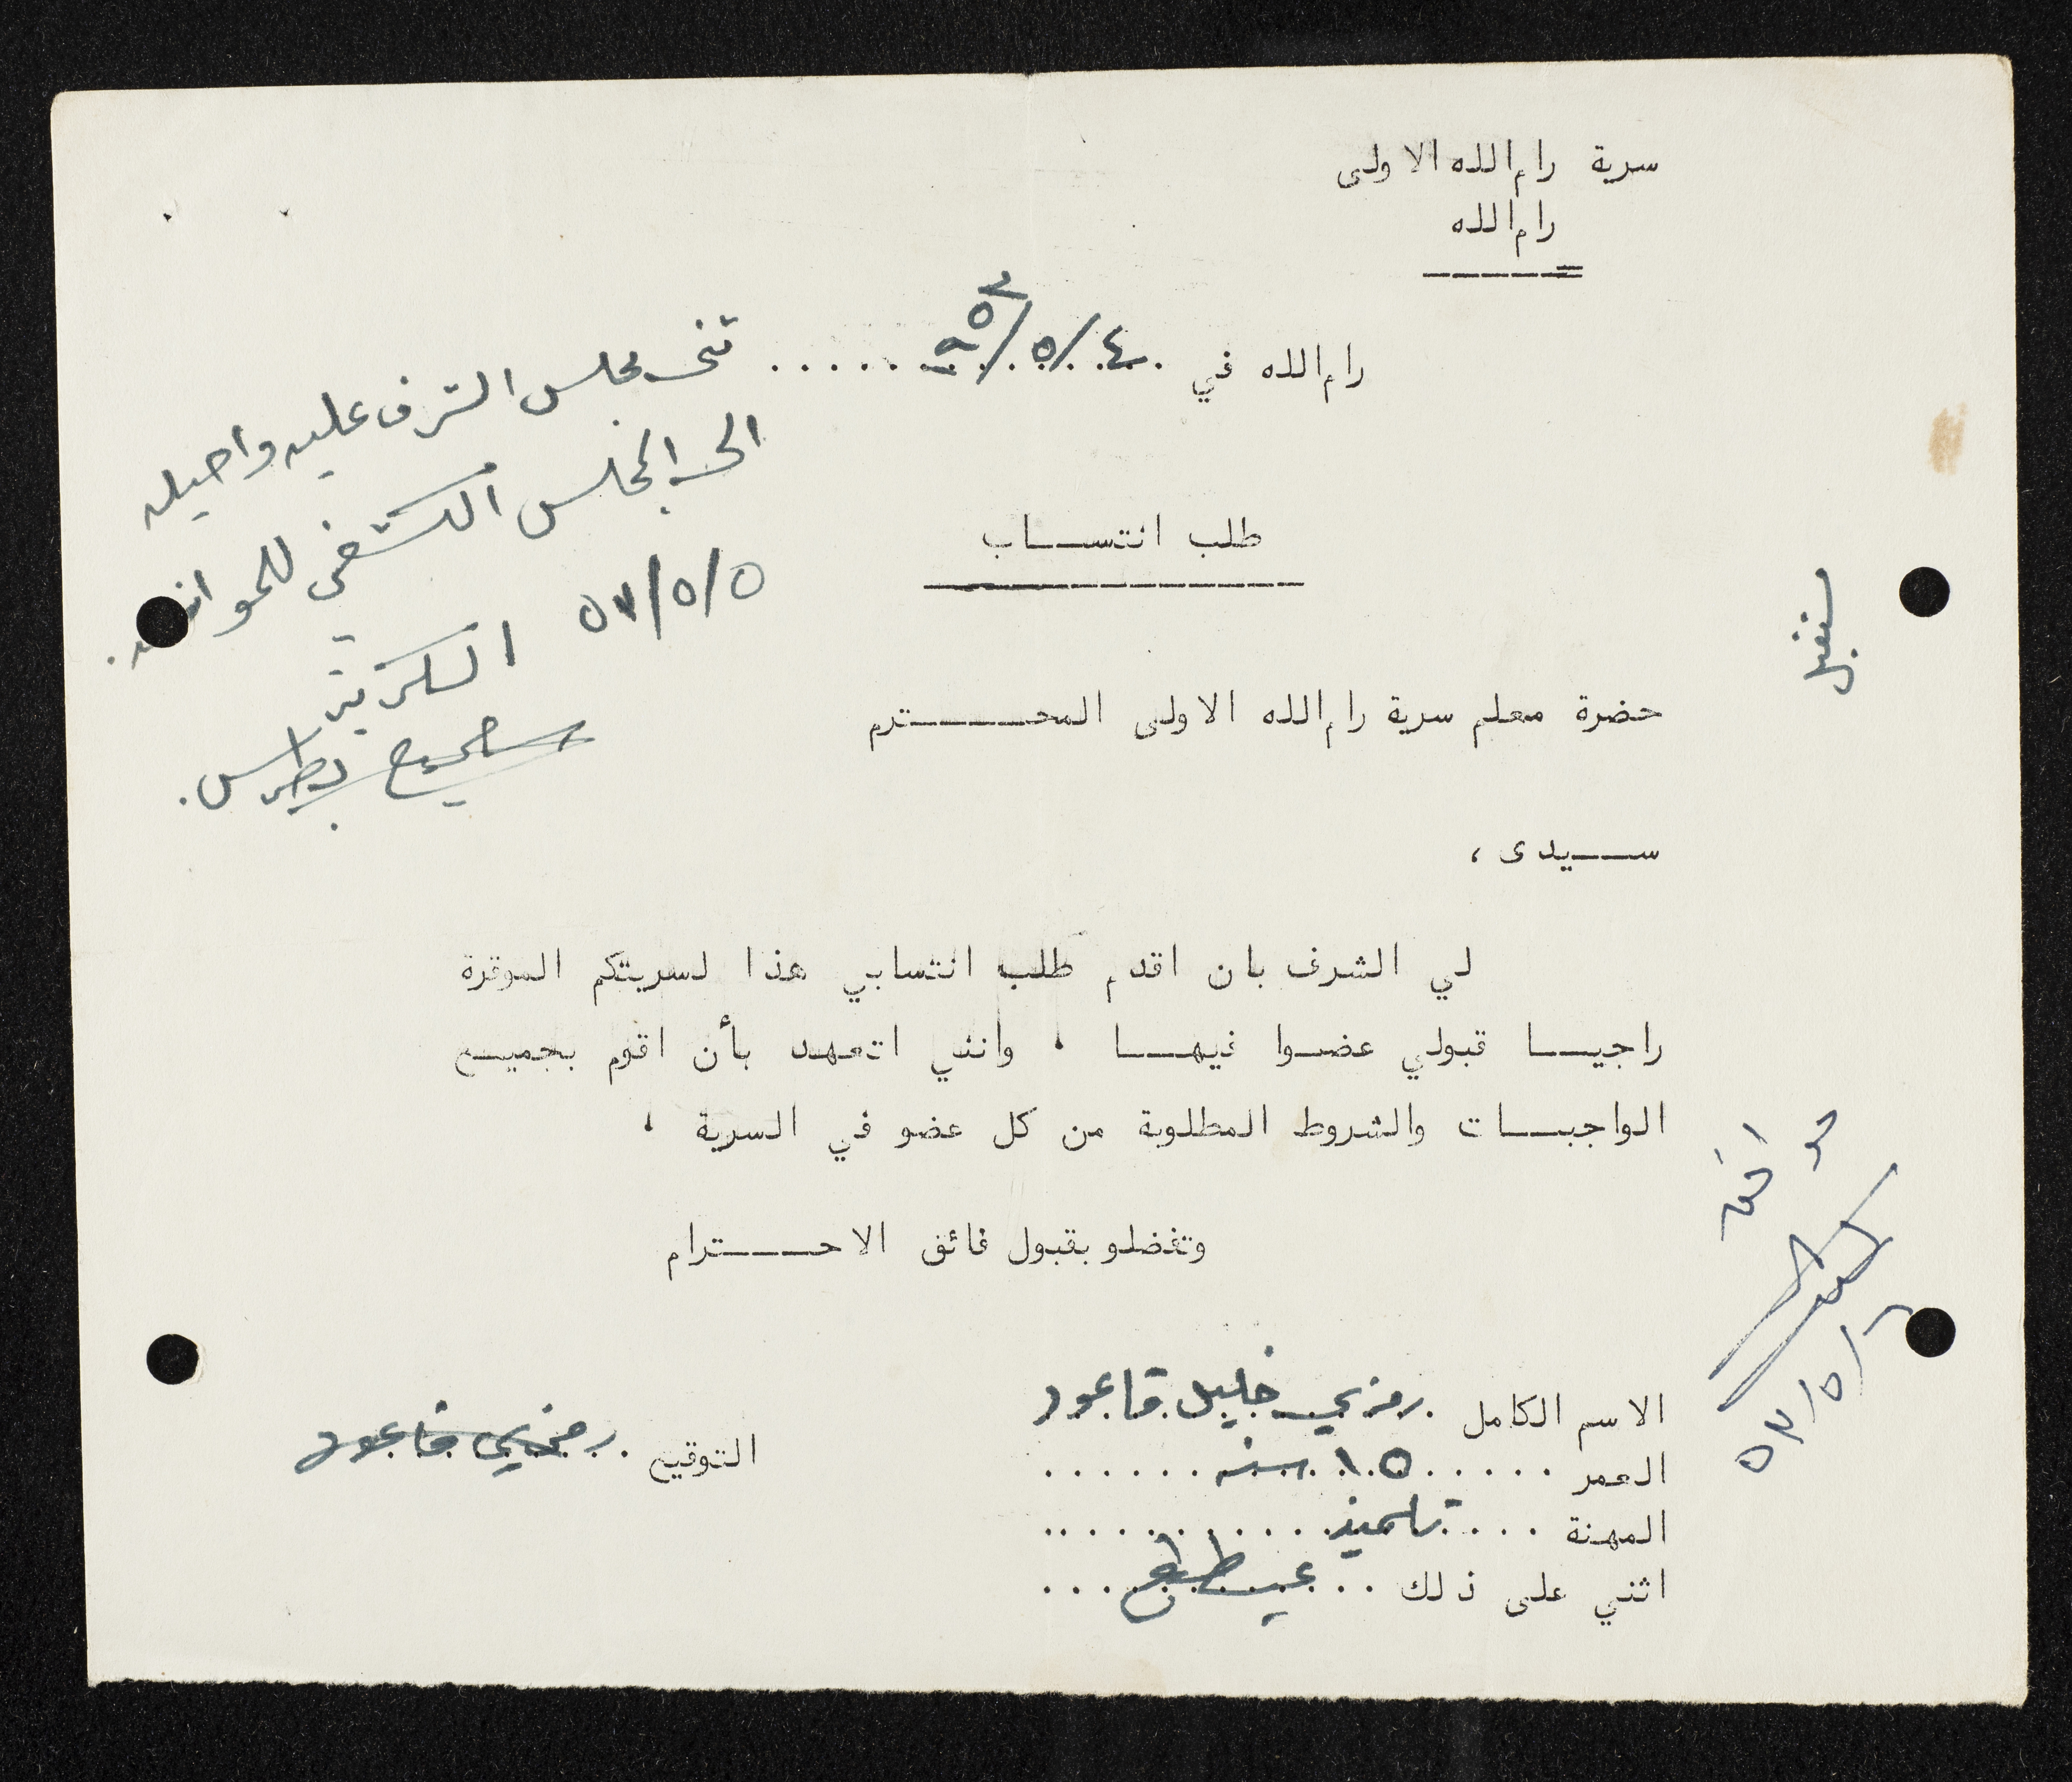 سرية رام الله الاولى
رام الله
رام الله في ٤/٥/٩٥٣
ثنى مجلس الشرف عليه واحيله
الى المجلس الكشفي للموافقه.
٥/٥/٥٣
السكرتير
بطرس
طلب انتساب
سنقبل
حضرة معلم سرية رام الله الاولى المحترم
سيدى ،
لي الشرف بان اقدم طلب انتسابي هذا لسريتكم الموقرة
راجيا قبولي عضوا فيها ، وانني اتعهد بأن اقوم بجميع
الواجبات والشروط المطلوبة من كل عضو في السرية ،
وتفضلو بقبول فائق الاحترام
موافق
٥٣/٥/
الاسم الكامل رمزي خليل قاعود
التوقيع رمزي قاعود
العمر ١٥ سنه
المهنة تلميذ
اثني على ذلك